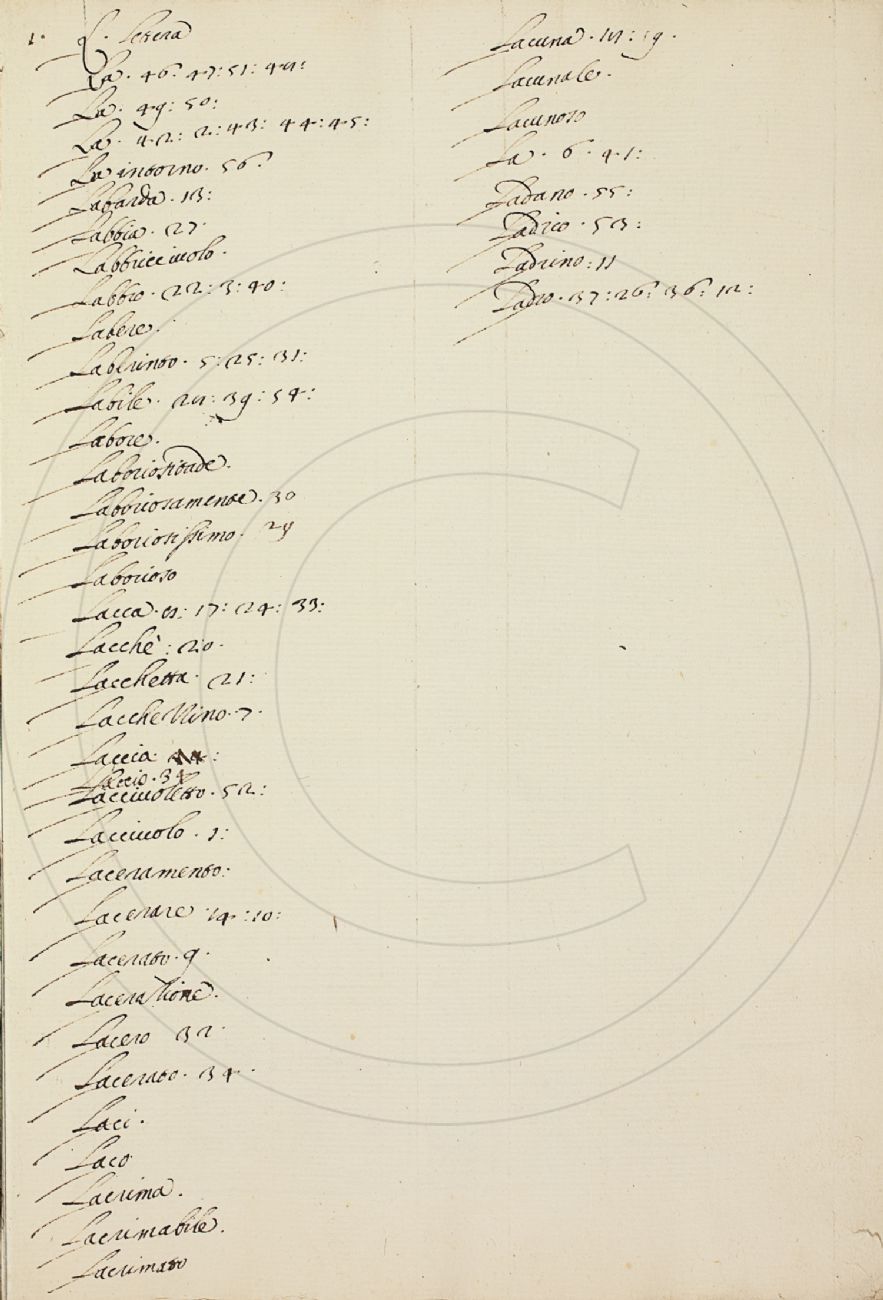 1. L. lettera
La. 46: 47: 51:
La. 49: 50:
La. 42: 2: 43: 44: 45:
La intorno. 56:
Labarda. 13:
Labbia. 27.
Labbricciuolo.
Labbro. 22: 3: 40:
Labere.
Laberinto. 5: 25: 31:
Labile. 39: 54:
Labore.
Laboriositade.
Laboriosamente. 30
Laboriosissimo. 29
Laborioso
Lacca. 17: 24: 33:
Lacchè: 20.
Lacchetta. 21:
Lacchezzino. 7.
Laccia
Laccio. 34
Lacciuoletto. 52:
Lacciuolo. 1:
Laceramento:
Lacerare 14: 10:
Lacerato. 9.
Lacerazione.
Lacero 32.
Lacerato. 34.
Laci.
Laco
Lacrima.
Lacrimabile.
Lacrimato
Lacuna. 19.
Lacunale.
Lacunoso
La. 6. 41:
Ladano. 55:
Ladico. 53:
Ladrino: 11
Ladro. 37: 26: 36: 12: